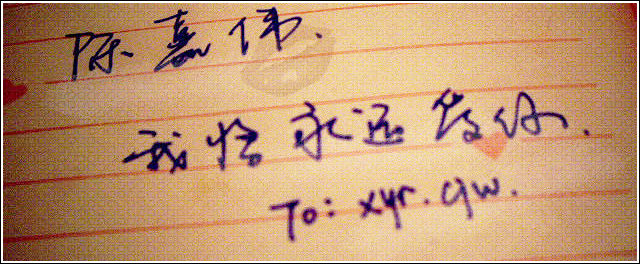 陈嘉伟.
我将永远爱你.
To: xyr. cjw.